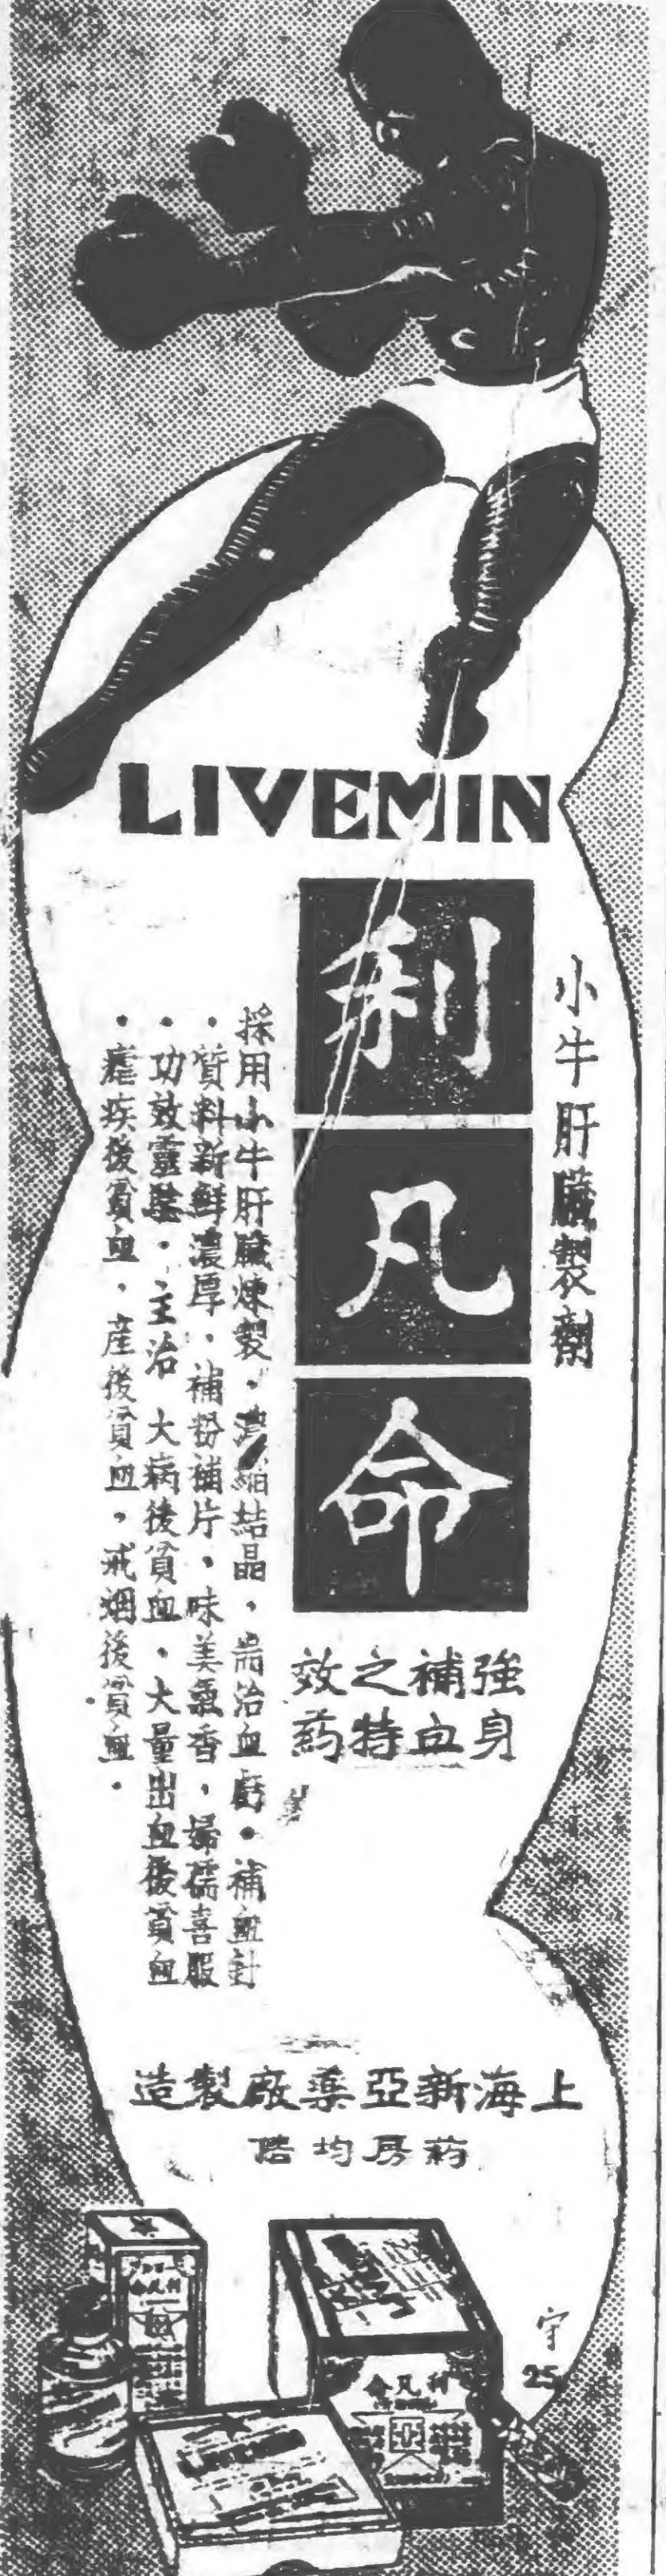 LIVEMIN
小牛肝臟製劑
利凡命
強身
補血
之特
效药
採用小牛肝臟煉製，濃縮結晶，耑治血虧。補血針
，質料新鮮濃厚，補粉補片，味美氣香，婦孺喜服
，功效靈，主治大病後貧血，大量出血後貧血
，瘧疾後貧血，產後貧血，戒烟後貧血。
上海新亞藥廠製造
药房均
宇
25
利凡命
亞